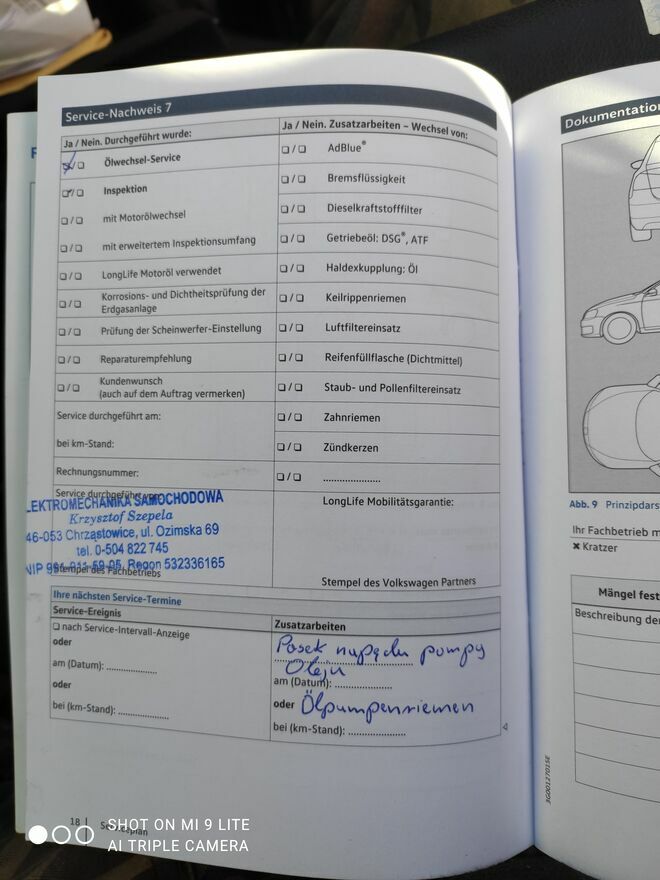 Service-Nachweis 7
Ja / Nein. Durchgeführt wurde:
❏/❏ Ölwechsel-Service
❏/❏ Inspektion
❏/❏ mit Motorölwechsel
❏/❏ mit erweitertem Inspektionsumfang
❏/❏ LongLife Motoröl verwendet
❏/❏ Korrosions- und Dichtheitsprüfung der
Erdgasanlage
❏/❏ Prüfung der Scheinwerfer-Einstellung
❏/❏ Reparaturempfehlung
❏/❏ Kundenwunsch
(auch auf dem Auftrag vermerken)
Service durchgeführt am:
bei km-Stand:
Rechnungsnummer:
Service durchgeführt
LEKTROMECHANIKA SAMOCHODOWA
Krzysztof Szepela
46-053 Chrząstowice, ul. Ozimska 69
tel. 0-504 822 745
Regon 532336165
Stempel des Fachbetriebs
Ja / Nein. Zusatzarbeiten – Wechsel von:
❏/❏ AdBlue®
❏/❏ Bremsflüssigkeit
❏/❏ Dieselkraftstofffilter
❏/❏ Getriebeöl: DSG®, ATF
❏/❏ Haldexkupplung: Öl
❏/❏ Keilrippenriemen
❏/❏ Luftfiltereinsatz
❏/❏ Reifenfüllflasche (Dichtmittel)
❏/❏ Staub- und Pollenfiltereinsatz
❏/❏ Zahnriemen
❏/❏ Zündkerzen
❏/❏ .....................
LongLife Mobilitätsgarantie:
Stempel des Volkswagen Partners
Ihre nächsten Service-Termine
Service-Ereignis
❏ nach Service-Intervall-Anzeige
oder
am (Datum): ..................
oder
bei (km-Stand): ..................
Zusatzarbeiten
Pasek napędu pompy
Oleju
am (Datum): ....................
oder Ölpumpenriemen
bei (km-Stand): ....................
18
Dokumentation
Abb. 9 Prinzipdars
Ihr Fachbetrieb m
✖ Kratzer
Mängel fest
Beschreibung der
3G0012701SE
SHOT ON MI 9 LITE
AI TRIPLE CAMERA